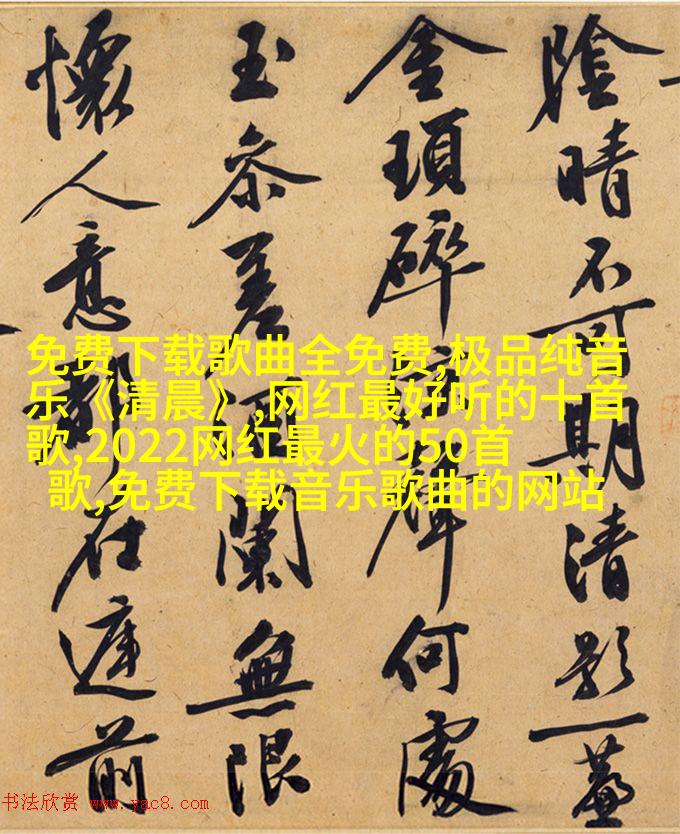 陰晴不可期清影一
金瑣碎寒聲何處
玉參差酒闌無限
懷人意都在前
免费下载歌曲全免费,极品纯音
乐《清晨》,网红最好听的十首
歌,2022网红最火的50首
歌,免费下载音乐歌曲的网站
书法欣赏 www.yac8.com